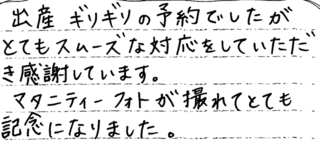 出産ギリギリの予約でしたが
とてもスムーズな対応をしていただ
き感謝しています。
マタニティーフォトが撮れてとても
記念になりました。